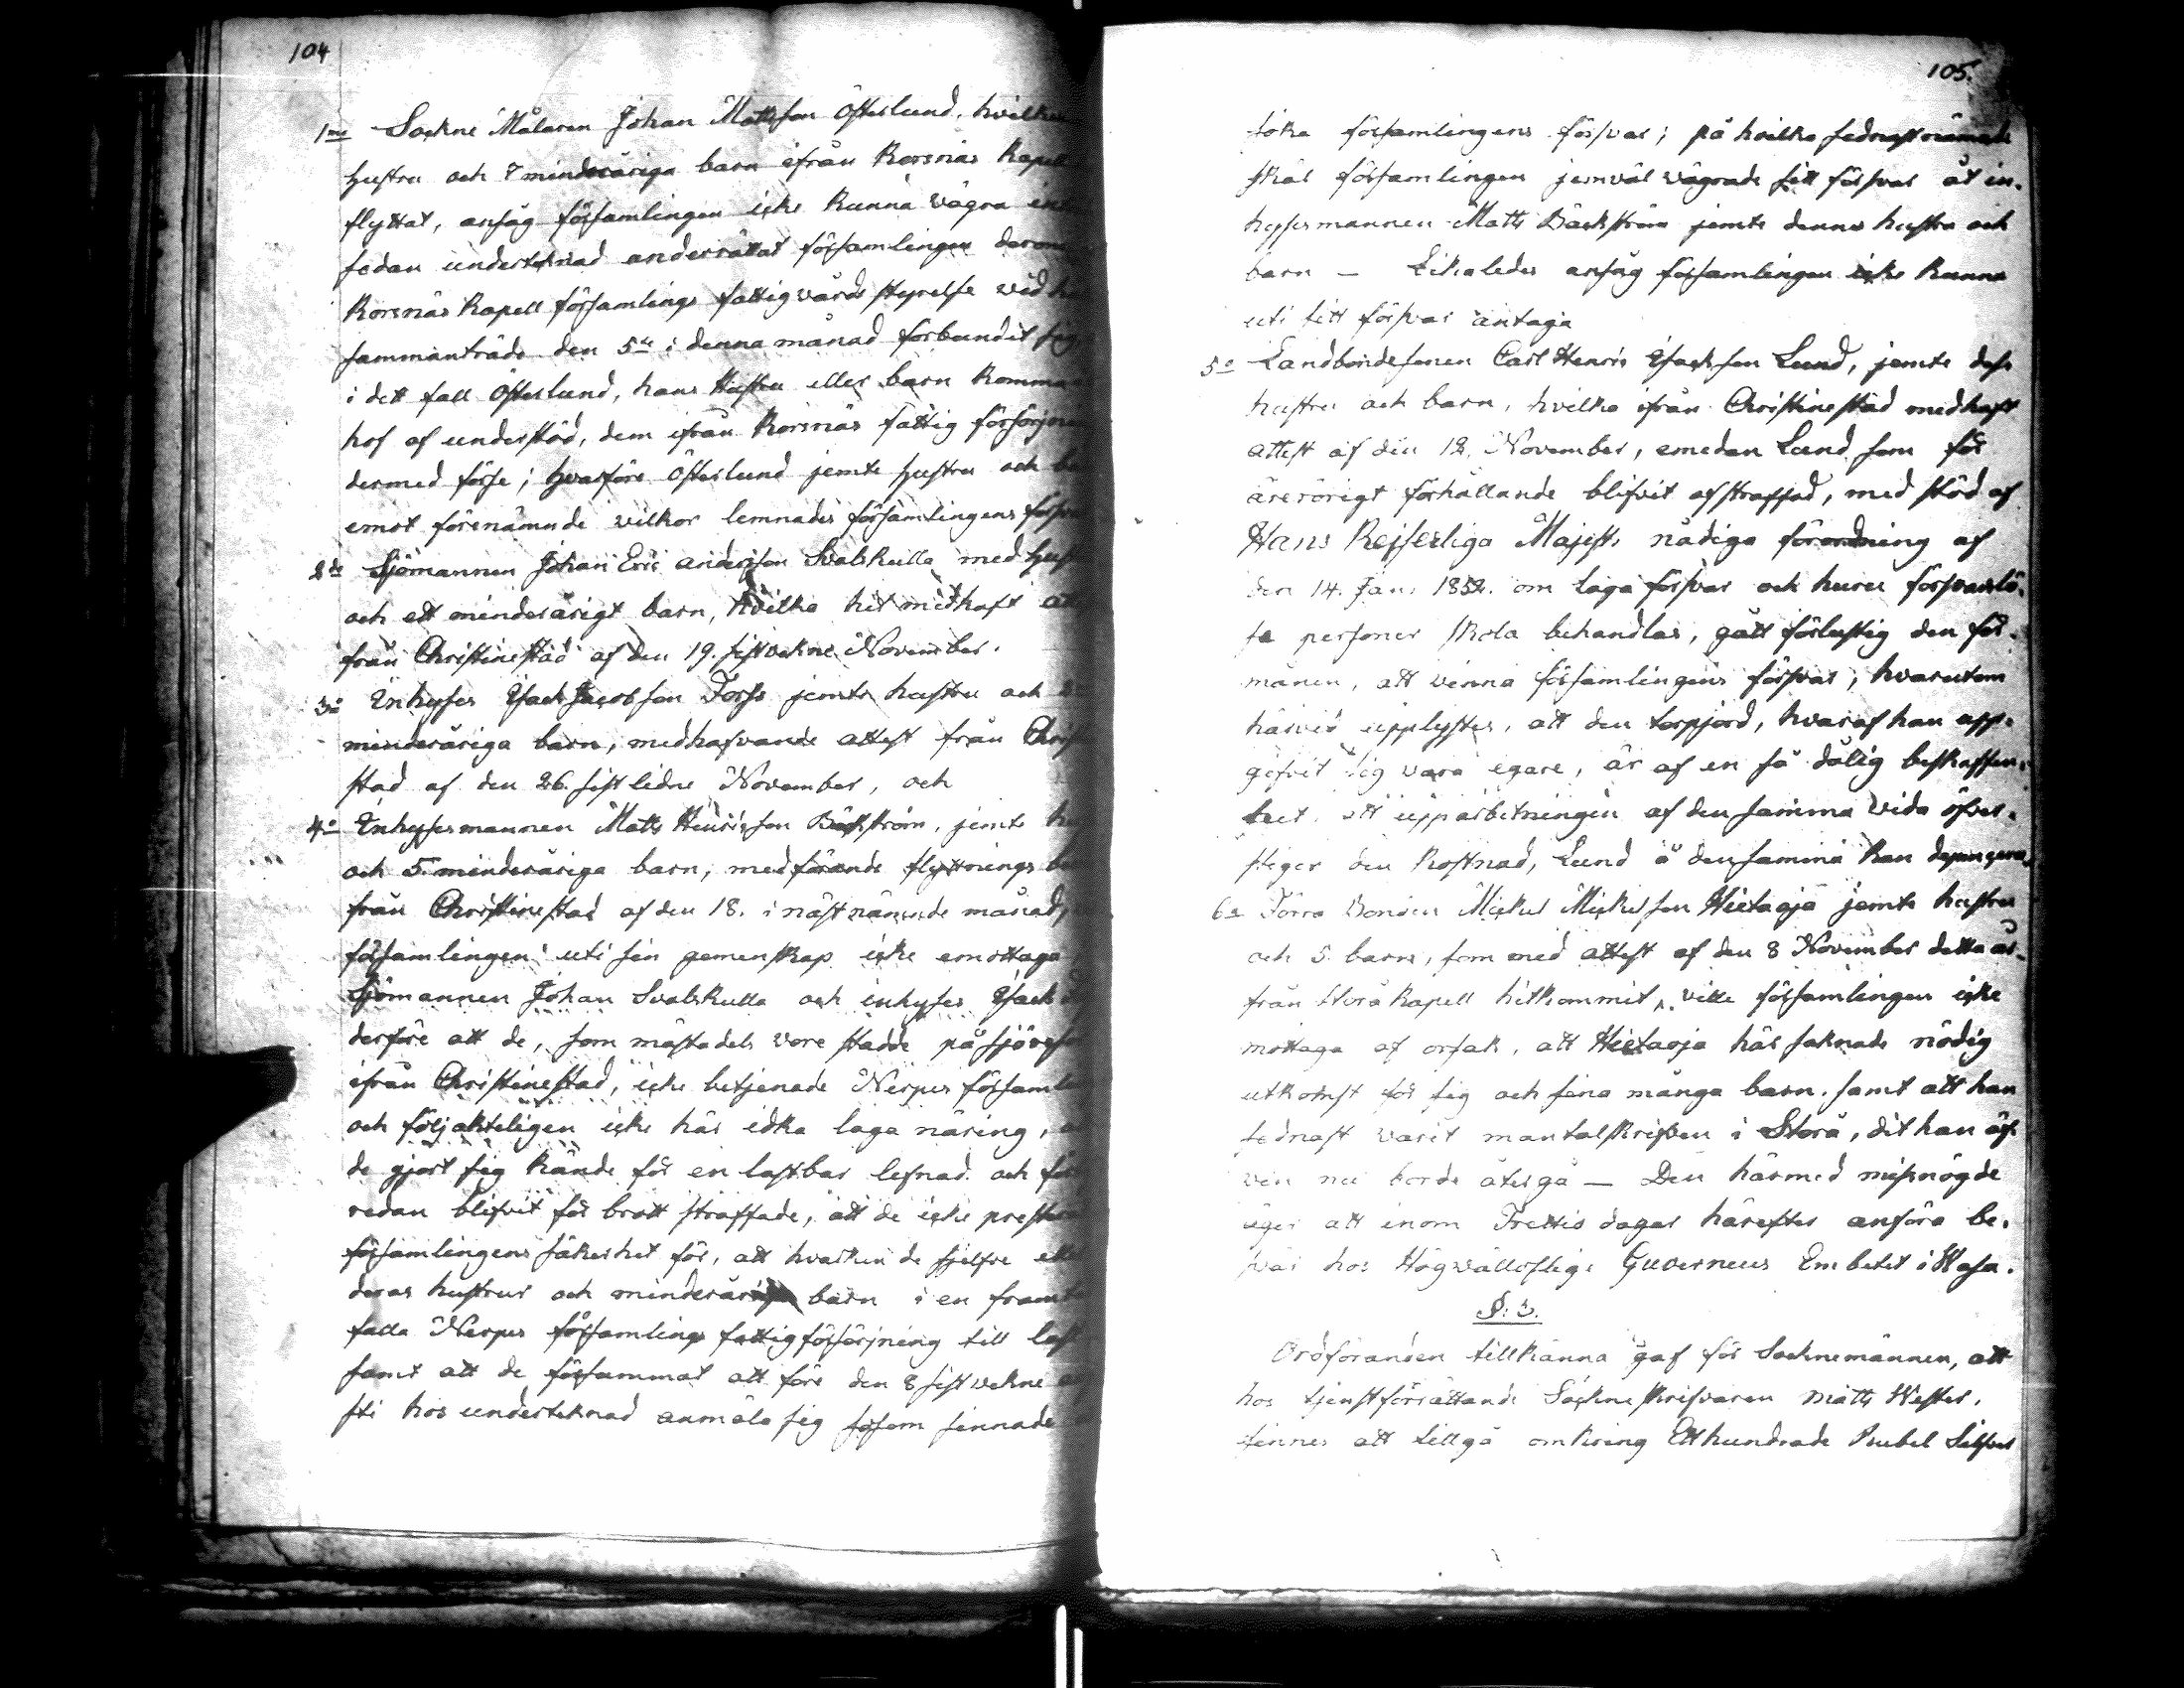 104
1mo Sockne Målaren Johan Mattsson Österlund, hvilken
hustru och 7 minderåriga barn ifrån Korsnäs Kapell
flyttat, ansåg församlingen icke kunna vägra
sedan undertecknad underrättat församlingen derom
Korsnäs Kapell församlings fattigvårds styrelse vid
sammanträde den 5te i denna månad förbundit sig
i dett fall Österlund, hans Hustru eller barn komma
hof af understöd, dem ifrån Korsnäs fattig försörjn
dermed förse; hvarföre Österlund jemte hustru och
emot förenämnde vilkor lemnades församlingens försv
2do Sjömannen Johan Eric Andersson Svalskulla med hust
och ett minderårigt barn, hvilka hit medhaft att
från Christinestad af den 19. sistvekne November.
3o Inhyses Isack Jacobsson Forss jemte hustru och
minderåriga barn, medhafvande attest från Christ
stad af den 26. sistlidne November, och
4o Inhysesmannen Matts Henricsson Bäckström, jemte hu
och 5 minderåriga barn, medförande flyttnings be
från Christinestad af den 18. i nästnämnde månad,
församlingen uti sin gemenskap icke emottaga
Sjömannen Johan Svalskulla och inhyses Isack
derföre att de, som mästadels vore stadde på sjöresa
ifrån Christinestad, icke betjenade Nerpes församl
och följakteligen icke här idka laga näring,
de gjort sig kände för en lastbar lefnad och för
redan blifvit för brott straffade, att de icke prester
församlingens säkerhet för, att hvarken de sjelfve elle
deras hustrur och minderåriga barn i en framt
falla Nerpes församlings fattigförsörjning till last
samt att de försummat att före den 8 sistvekne
sti hos undertecknad anmäla sig såsom sinnade
105.
söka församlingens försvar; på hvilka sednastnämnde
skäl församlingen jemväl vägrade sitt försvar åt in-
hysesmannen Matts Bäckström jemte dennes hustru och
barn — Likaledes ansåg församlingen icke kunna
uti sitt försvar antaga
5o Landbondesonen Carl Henric Isacksson Lund, jemte dess
hustru och barn, hvilka ifrån Christinestad medhaft
attest af den 12. November, emedan Lund som för
ärerörigt förhållande blifvit afstraffad, med stöd af
Hans Kejserliga Majests nådiga förordning af
den 14. Jan: 1852. om laga försvar och huru försvarslö-
sa personer skola behandlas, gått förlustig den för-
månen, att vinna församlingens försvar; hvarutom
härvid upplystes, att den torpjord, hvaraf han upp-
gifvit sig vara egare, är af en så dålig beskaffen-
het, att upparbetningen af densamma vida öfver-
stiger den kostnad, Lund å densamma kan
6o Förra Bonden Mickel Mickelsson Hietaoja jemte hustru
och 5 barn, som med attest af den 8 November detta år
från Storå Kapell hitkommit, ville församlingen icke
mottaga af orsak, att Hietaoja här saknade nödig
utkomst för sig och sina många barn, samt att han
sednast varit mantalskrifven i Storå, dit han äf-
ven nu borde återgå — Den härmed missnögde
äger att inom Trettio dagar härefter anföra be-
svär hos Högvällofliga Guverneurs Embetet i Wasa.
§: 3.
Ordföranden tillkänna gaf för Socknemännen, att
hos tjenstförrättande Sockneskrifvaren Matts Wester,
finnes att tillgå omkring Etthundrade Rubel Silfver